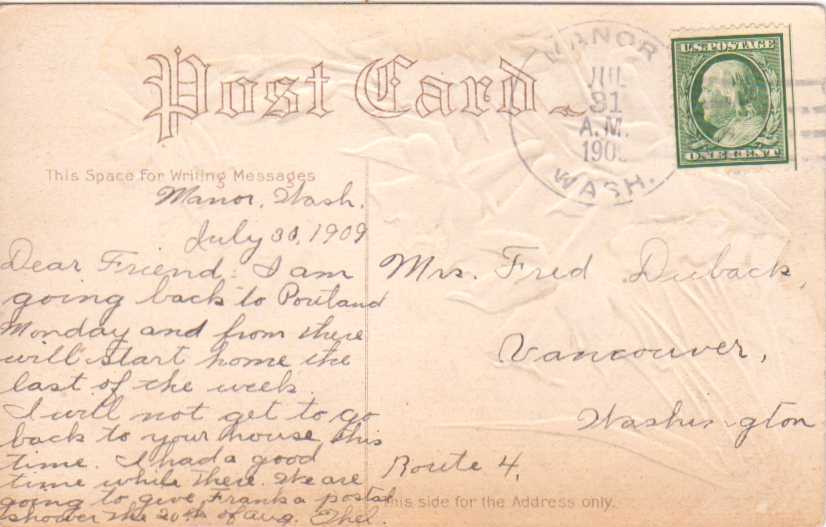 Post Card
MANOR
JUL
31
A.M.
190
WASH.
U.S. POSTAGE
ONE CENT
This Space For Writing Messages
Manor, Wash.
July 30, 1909
Dear Friend: I am
going back to Portland
Monday and from there
will start home the
last of the week.
I will not get to go
back to your house this
time. I had a good
time while there. We are
going to give Frank a postal
shower the 20th of Aug. Ethel.
Mrs. Fred Duback,
Vancouver,
Washington
Route 4,
This side for the Address only.